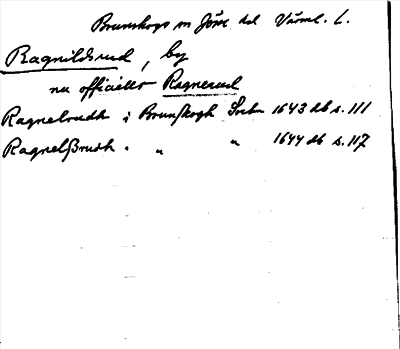 Brunskogs sn Jösse hd Värml. l.
Ragnildsrud, by
nu officiellt Ragnerud
Ragnelrudh i Brunskogh Sockn 1643 db s. 111
Ragnelßrudh " " " 1644 db s. 117